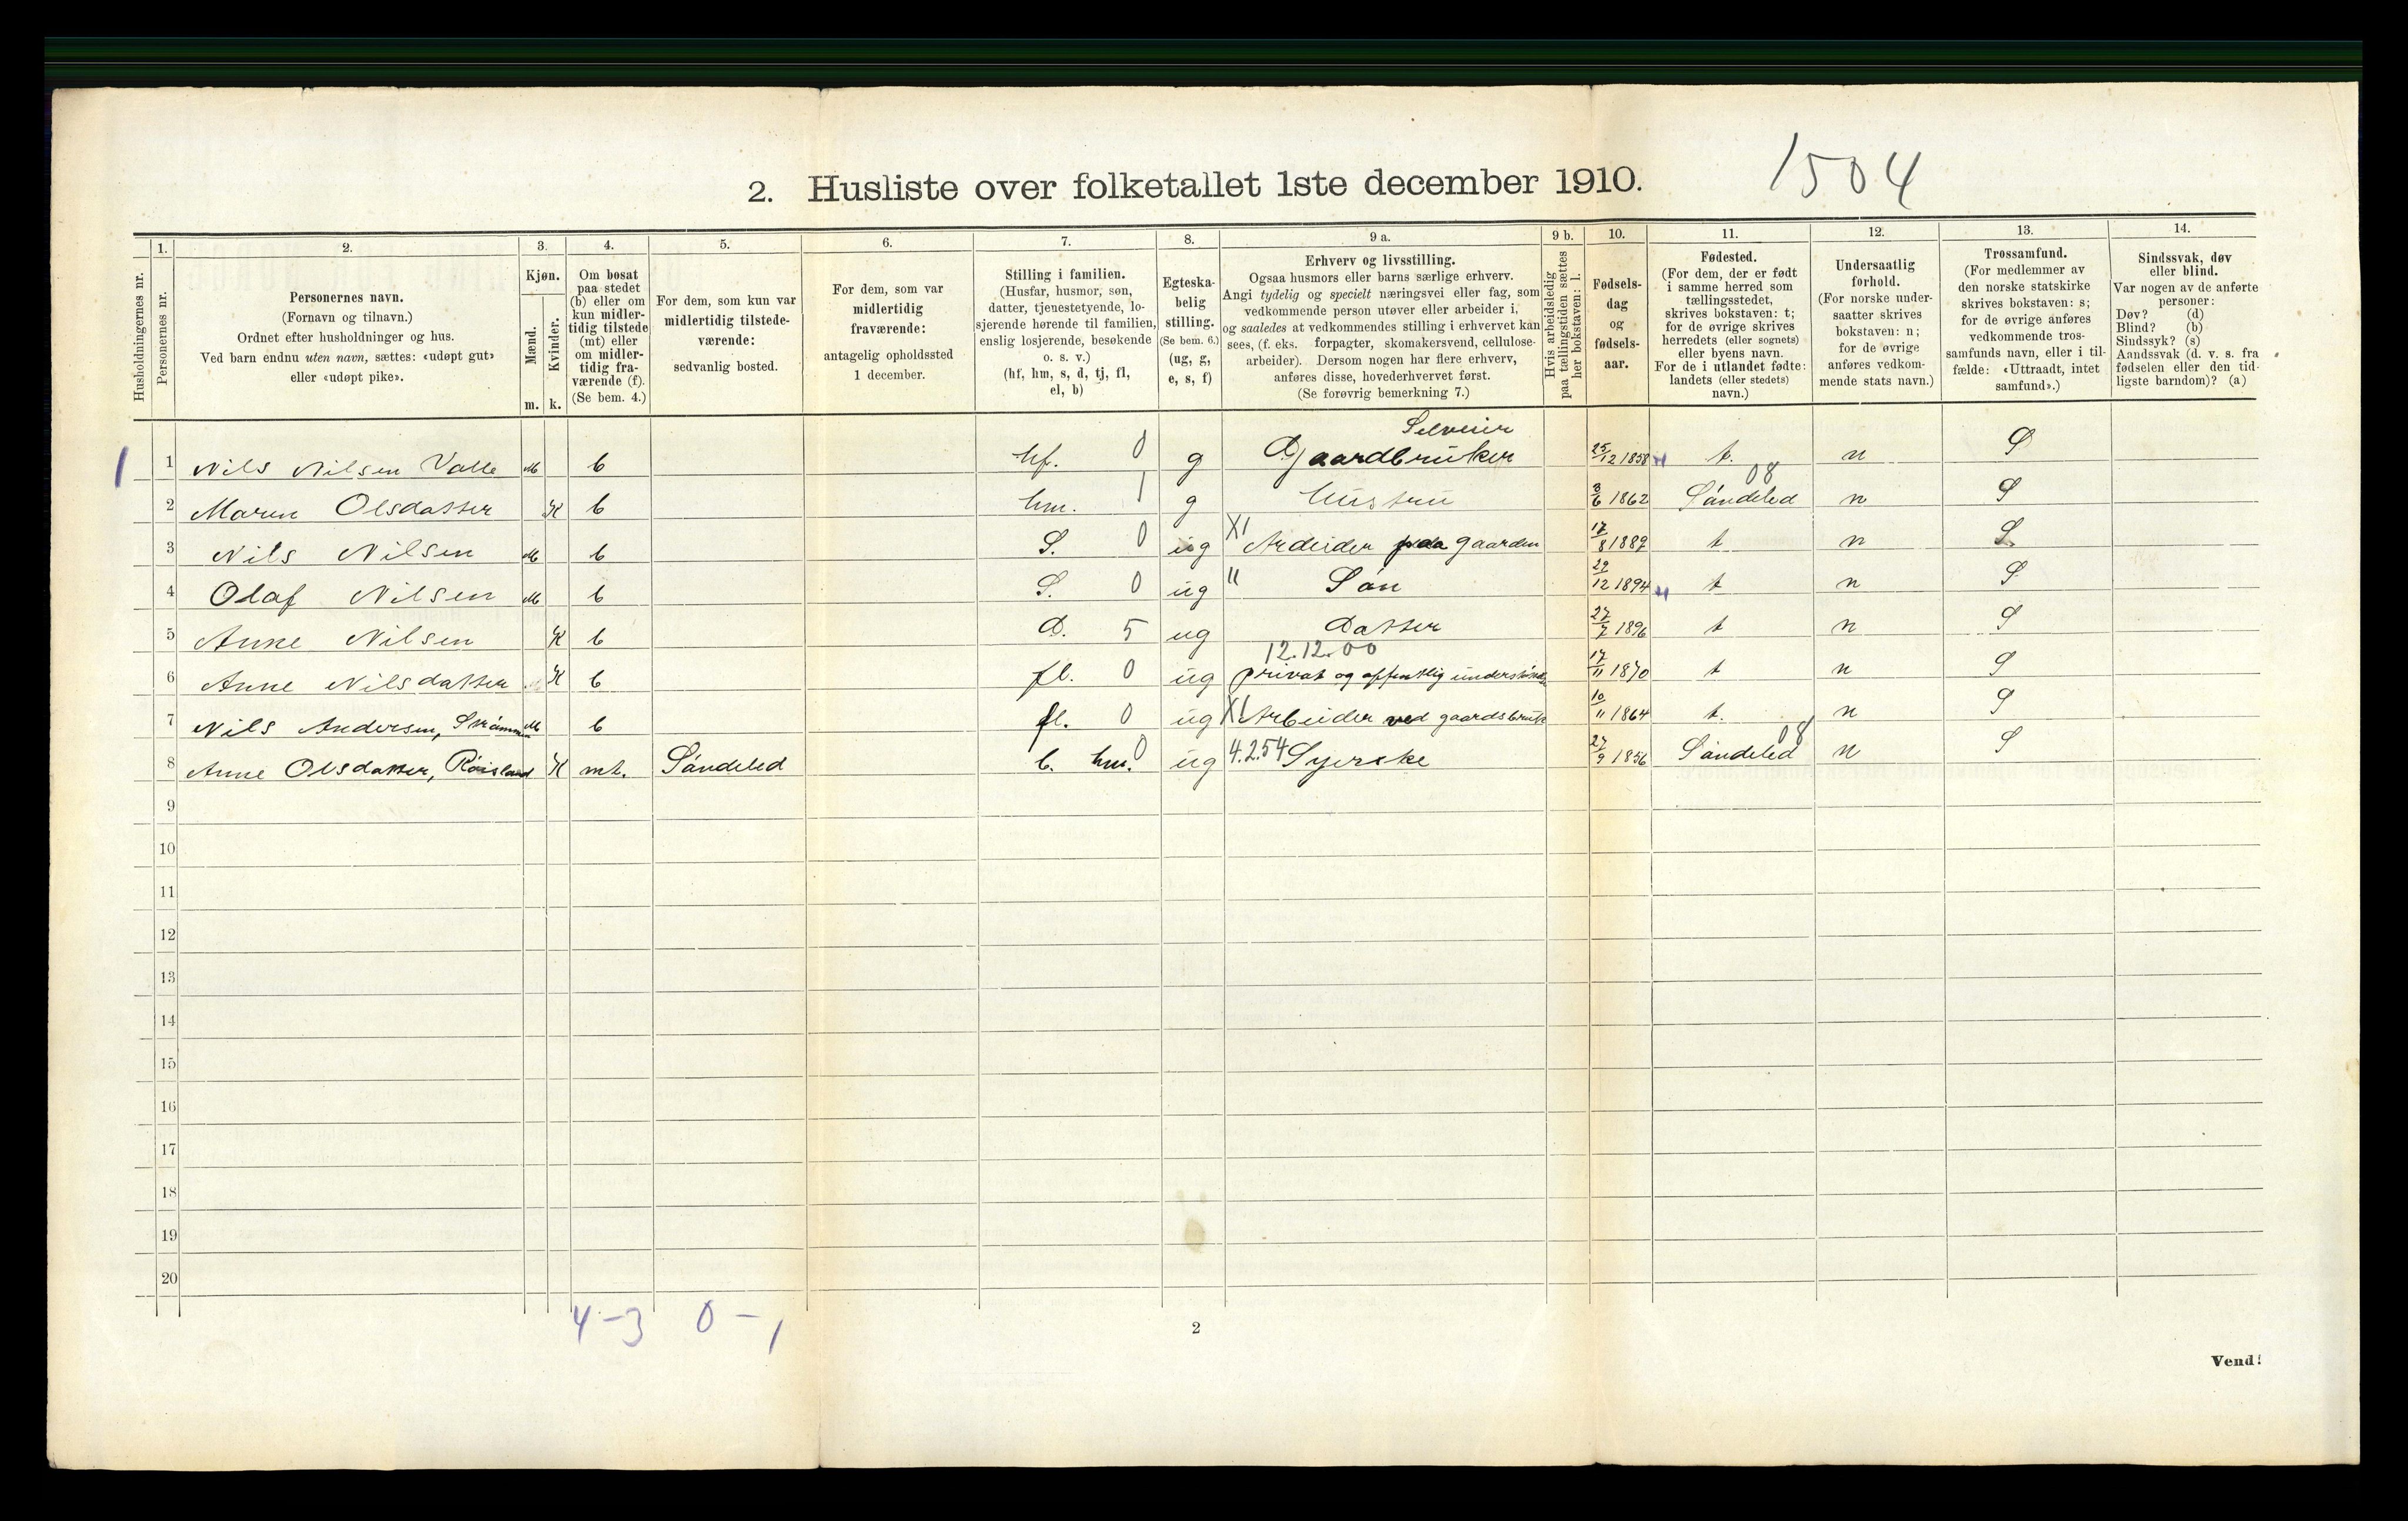 2. Husliste over folketallet 1ste december 1910.
1504
Husholdningernes nr.
1.
Personernes nr.
2.
Personernes navn.
(Fornavn og tilnavn.)
Ordnet efter husholdninger og hus.
Ved barn endnu uten navn, sættes: «udøpt gut»
eller «udøpt pike».
3.
Kjøn.
Mænd.
Kvinder.
m. k.
4.
Om bosat
paa stedet
(b) eller om
kun midler-
tidig tilstede
(mt) eller
om midler-
tidig fra-
værende (f).
(Se bem. 4.)
5.
For dem, som kun var
midlertidig tilstede-
værende:
sedvanlig bosted.
6.
For dem, som var
midlertidig
fraværende:
antagelig opholdssted
1 december.
7.
Stilling i familien.
(Husfar, husmor, søn,
datter, tjenestetyende, lo-
sjerende hørende til familien,
enslig losjerende, besøkende
o. s. v.)
(hf, hm, s, d, tj, fl,
el, b)
8.
Egteska-
belig
stilling.
(Se bem. 6.)
(ug, g,
e, s, f)
9 a.
Erhverv og livsstilling.
Ogsaa husmors eller barns særlige erhverv.
Angi tydelig og specielt næringsvei eller fag, som
vedkommende person utøver eller arbeider i,
og saaledes at vedkommendes stilling i erhvervet kan
sees, (f. eks. forpagter, skomakersvend, cellulose-
arbeider). Dersom nogen har flere erhverv,
anføres disse, hovederhvervet først.
(Se forøvrig bemerkning 7.)
9 b.
Hvis arbeidsledig
paa tællingstiden sættes
her bokstaven: l.
10.
Fødsels-
dag
og
fødsels-
aar.
11.
Fødested.
(For dem, der er født
i samme herred som
tællingsstedet,
skrives bokstaven: t;
for de øvrige skrives
herredets (eller sognets)
eller byens navn.
For de i utlandet fødte:
landets (eller stedets)
navn.)
12.
Undersaatlig
forhold.
(For norske under-
saatter skrives
bokstaven: n;
for de øvrige
anføres vedkom-
mende stats navn.)
13.
Trossamfund.
(For medlemmer av
den norske statskirke
skrives bokstaven: s;
for de øvrige anføres
vedkommende tros-
samfunds navn, eller i til-
fælde: «Uttraadt, intet
samfund».)
14.
Sindssvak, døv
eller blind.
Var nogen av de anførte
personer:
Døv? (d)
Blind? (b)
Sindssyk? (s)
Aandssvak (d. v. s. fra
fødselen eller den tid-
ligste barndom)? (a)
Selveier
1 1 Nils Nilsen Valle M b hf. 0 g Gaardbruker 25/12 1858 t. n S
08
2 Maren Olsdatter K b hm. 1 g Hustru 3/6 1862 Søndeled n S
3 Nils Nilsen M b S. 0 ug X1 Arbeider paa gaarden 17/8 1889 t n S.
4 Olaf Nilsen M b S. 0 ug " Søn 29/12 1894 t n S
5 Anne Nilsen K b D. 5 ug Datter 27/7 1896 t n S
12.12.00
6 Anne Nilsdatter K b fl. 0 ug privat og offentlig 17/11 1870 t n S
7 Nils Andersen, M b fl. 0 ug X1 Arbeider ved gaardsbruk 10/11 1864 t. n S
08
8 Anne Olsdatter, Røisland K mt. Søndeled b. hm. 0 ug 4.2.54 Syerske 27/9 1856 Søndeled n S
9
10
11
12
13
14
15
16
17
18
19
20
4-3 0-1
2
Vend!